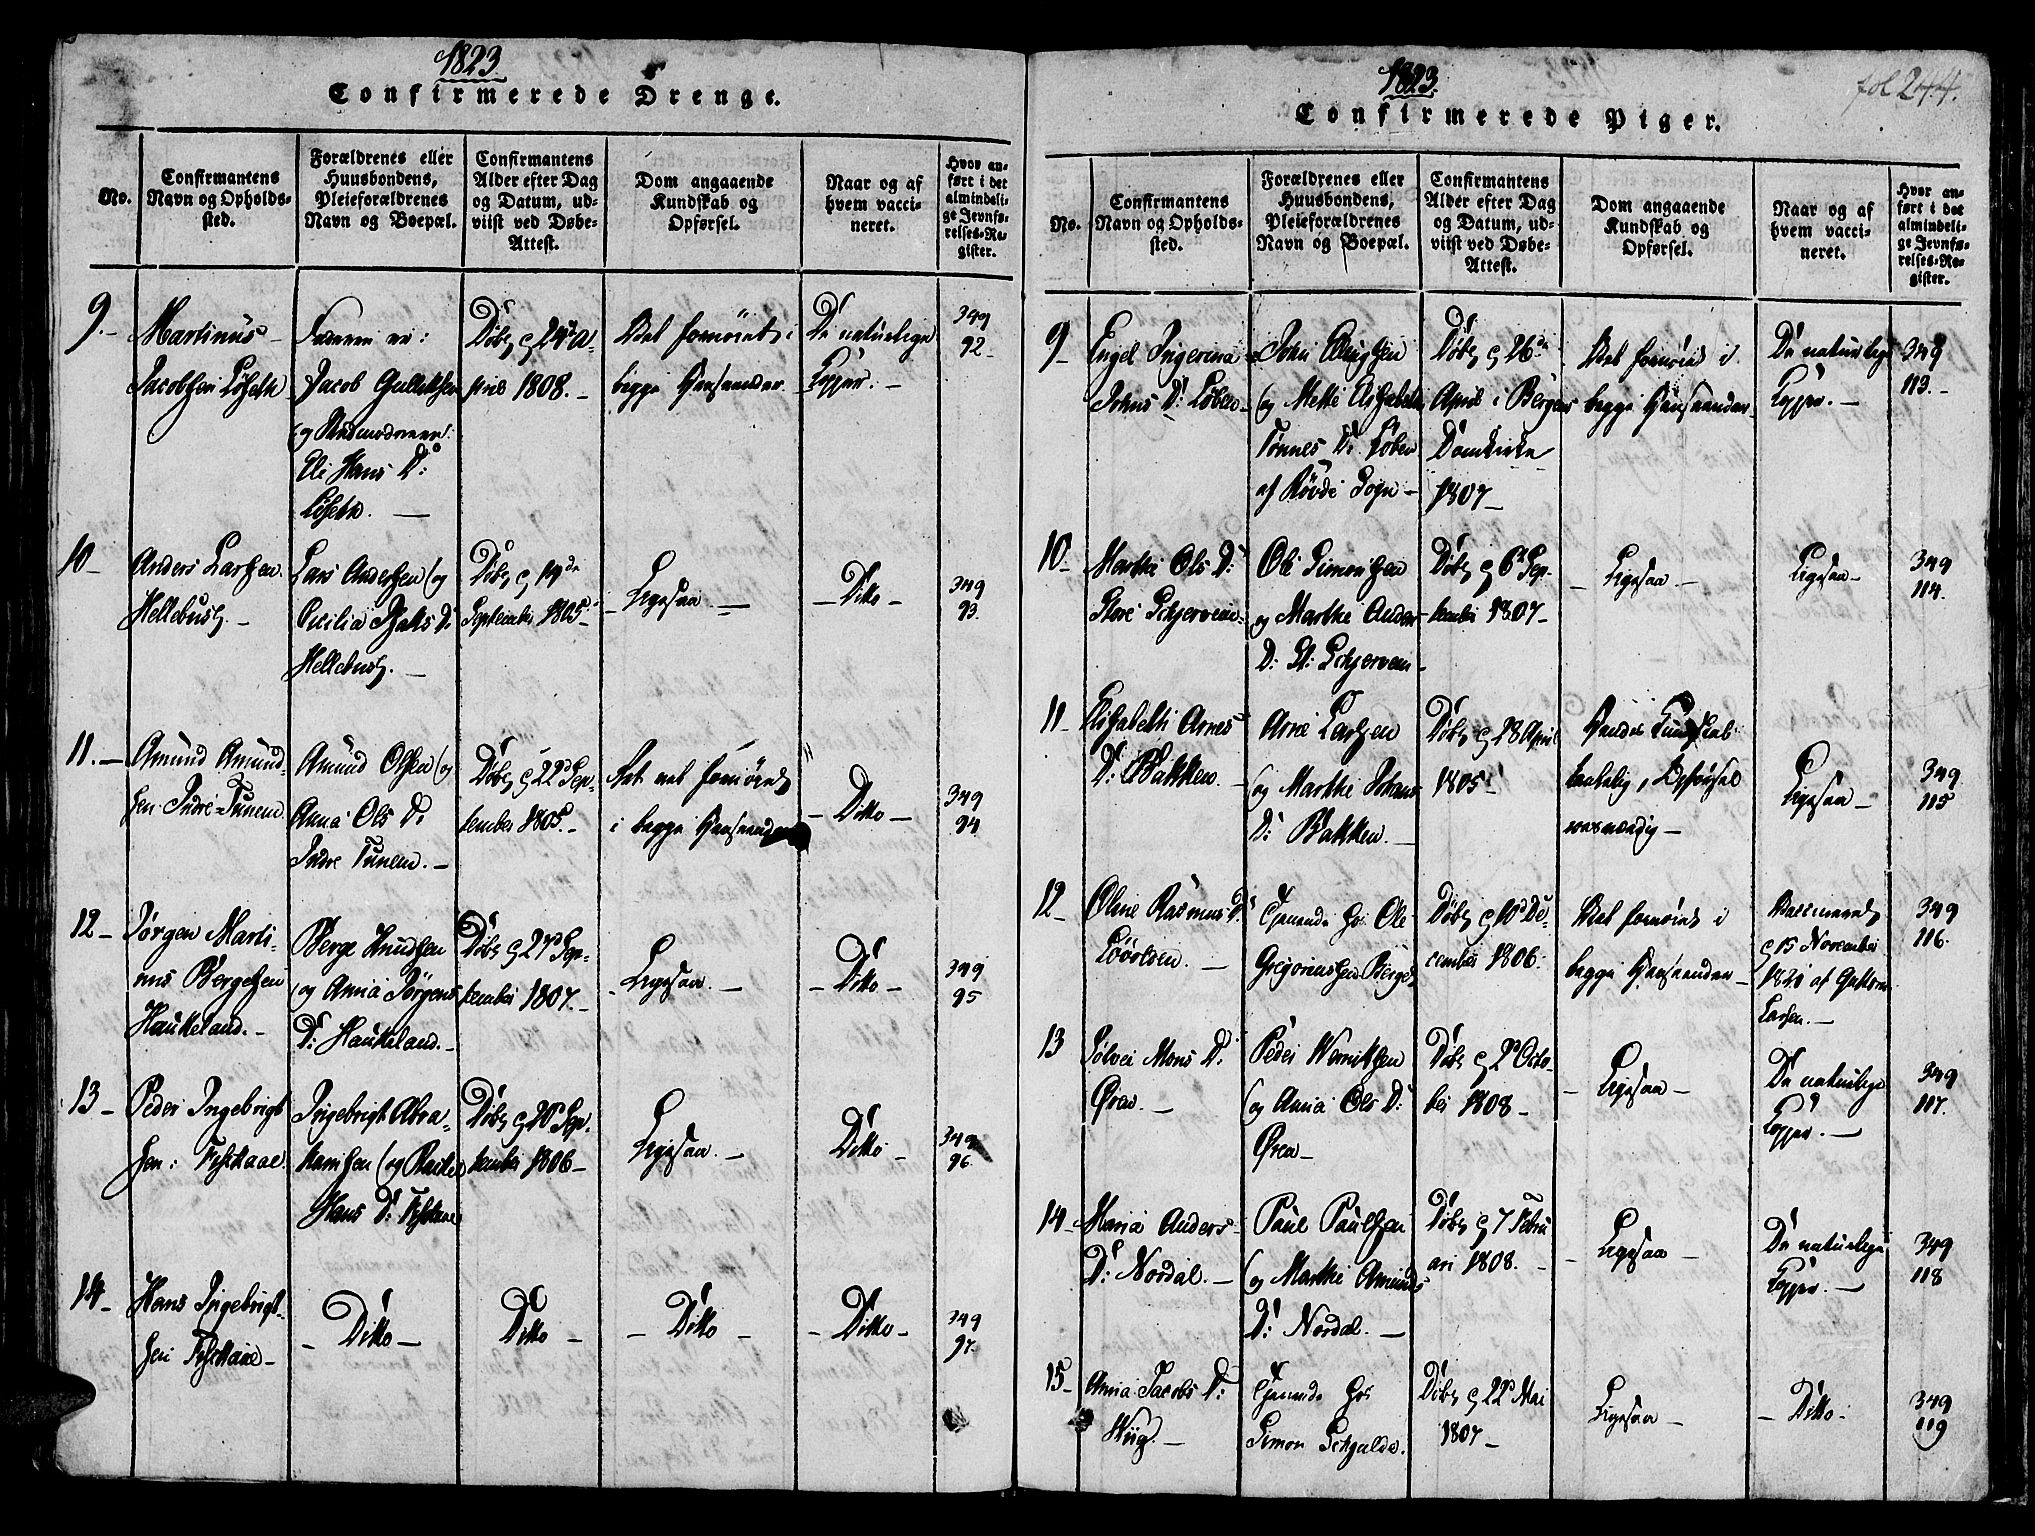 1823
Confirmerede Drenge.
No.
Confirmantens
Navn og Opholds-
sted.
Forældrenes eller
Huusbondens,
Pleieforældrenes
Navn og Boepæl.
Confirmantens
Alder efter Dag
og Datum, ud-
viist ved Døbe-
Attest.
Dom angaaende
Kundskab og
Opførsel.
Naar og af
hvem vacci-
neret.
Hvor an-
ført i det
almindeli-
ge Jevnfø-
relses-Re-
gister.
9.-
Martinus
Jacobsen
Faderen er:
Jacob
og Stedmoderen
Eli Hans D:
Døbt d 24de A-
pril 1808.-
Vel fornøiet i
begge Henseender
De naturlige
Kopper.-
349
92-
10-
Anders Larssen
Lars Anderssen og
Cecilia D:
Døbt d 14de
September 1805-
Ligesaa-
-Ditto-
349
93.
11.-
Amund Amund-
sen Indre-Tunem
Amund Olssen og
Anna Ols D:
Indre Tunem.-
Døbt d 22d Sep-
tember 1805.-
vel fornøiet
i begge Henseender
-Ditto-
349
94
12-
Jørgen Marti-
nus Bergesen
Haukeland.-
Berge Knudssen
og Anna Jørgens
D: Haukeland.-
Døbt d 27d Sep-
tember 1807.-
-Ligesaa.-
-Ditto-
349
95
13-
Peder Ingebrigt
sen
Ingebrigt Abra-
hamsen og
Hans D:
Døbt d 20d Sep-
tember 1806-
Ligesaa.-
Ditto-
349
96.
14-
Hans Ingebrigt-
sen
-Ditto-
Ditto-
-Ditto-
-Ditto-
349
97.
fol 244.
1823.
Confirmerede Piger.
No.
Confirmantens
Navn og Opholds-
sted.
Forældrenes eller
Huusbondens,
Pleieforældrenes
Navn og Boepæl.
Confirmantens
Alder efter Dag
og Datum, ud-
viist ved Døbe-
Attest.
Dom angaaende
Kundskab og
Opførsel.
Naar og af
hvem vacci-
neret.
Hvor an-
ført i det
almindeli-
ge Jevnfø-
relses-Re-
gister.
9-
Engel Ingerina
Johns D:
John
og Mette Elisabeth
Tønnes D:
af Rövde Sogn-
Døbt d 26de
April i Bergens
Domkirke
1807-
Vel fornøiet i
begge Henseender
De naturlige
Kopper.-
349
113.-
10-
Marthe Ols D:
Store Schjervem-
Ole Simonssen
og Marthe Anders
D: St: Schjervem-
Døbt d 6d Sep-
tember 1807-
-Ligesaa-
Ligesaa-
349
114.
11-
Elisabeth Arnes
D: Bakken.-
Arne Larssen
og Marthe Johans
D: Bakken.-
Døbt d 28 April
1805-
Kundskab
taalelig, Opførsel
Ligesaa-
349
115
12-
Oline Rasmus D:
Tjenende hos Ole
Gregoriussen Berge
Døbt d 10d De-
cember 1806-
Vel fornøiet i
begge Henseender-
Vaccineret
d 15 November
af
Larsen.-
349
116.
13
Sølvei Mons D:
Øren.-
Peder
og Anna Ols D:
Øren-
Døbt d 2d Octo-
ber 1808-
-Ligesaa-
De naturlige
Kopper.-
349
117.
14-
Maria Anders
D: Nordal.-
Paul Paulssen
og Marthe Amunds
D: Nordal.-
Døbt d 7 Febru
ari 1808.-
-Ligesaa-
De naturlige
Kopper.-
349
118
15-
Anna Jacobs D:
Wiig.-
Tjenende hos
Simon
Døbt d 22d Mai
1807-
Ligesaa-
-Ditto-
349
119